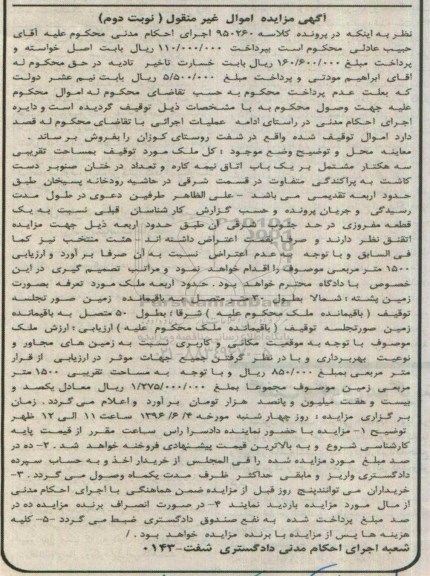 آگهی مزایده اموال غیر منقول ( نوبت دوم)
نظر به اینکه در پرونده کلاسه ۹۵۰۲۶۰ اجرای احکام مدنی محکوم علیه آقای
حبیب عادلی محکوم است بپرداخت ۱۱۰/۰۰۰/۰۰۰ ریال بابت اصل خواسته و
پرداخت مبلغ ۱۶۰/۶۰۰/۰۰۰ ریال بابت خسارت تاخیر تادیه در حق محکوم له
آقای ابراهیم مودتی و پرداخت مبلغ ۵/۵۰۰/۰۰۰ ریال بابت نیم عشر دولت
که بعلت عدم پرداخت محکوم به حسب تقاضای محکوم له اموال محکوم
علیه جهت وصول محکوم به با مشخصات ذیل توقیف گردیده است و دایره
اجرای احکام مدنی در راستای ادامه عملیات اجرائی با تقاضای محکوم له قصد
دارد اموال توقیف شده واقع در شفت روستای کوزان را بفروش برساند .
معاینه محل و توضیح وضع موجود : کل ملک مورد توقیف بمساحت تقریبی
سه هکتار مشتمل بر یک باب اتاق نیمه کاره و تعداد درختان صنوبر دست
کاشت به پراکندگی متفاوت در قسمت شرقی در حاشیه رودخانه پسیخان طبق
حدود اربعه تقدیمی می باشد – علی الظاهر طرفین دعوی در طول مدت
رسیدگی و جریان پرونده و حسب گزارش کارشناسان قبلی نسبت به یک
قطعه مفروزی در حد جنوب شرقی آن طبق حدود اربعه ذیل جهت مزایده
اتفاق نظر دارند و صرفا به قیمت اعتراض داشته اند . هئت منتخب نیز کما
فی السابق و با توجه به عدم اعتراض نسبت به آن صرفا بر آورد و ارزیابی
۱۵۰۰ متر مربعی موصوف را اقدام خواهد نمود و مراتب تصمیم گیری در این
خصوص با دادگاه محترم خواهد بود . حدود اربعه ملک مورد تعرفه بصورت
زمین پشته : شمالا بطول باقیمانده زمین صورتجلسه
توقیف ( باقیمانده ملک محکوم علیه ) شرقا : بطول ۵۰ متصل به باقیمانده
زمین صورتجلسه توقیف ( باقیمانده ملک محکوم علیه ) ارزیابی : ارزش ملک
موصوف با توجه به موقعیت مکانی و کاربری نسبت به زمین های مجاور و
نوعیت بهره برداری و با در نظر گرفتن کلیه جهات موثر در ارزیابی از قرار
متر مربعی بمبلغ ۸۵۰/۰۰۰ ریال و با توجه به مساحت تقریبی ۱۵۰۰ متر
مربعی زمین موصوف مجموعا بمبلغ ۱/۲۷۵/۰۰۰/۰۰۰ ریال معادل یکصد و
بیست و هفت میلیون و پانصد هزار تومان بر آورد و اعلام می گردد . زمان
برگزاری مزایده : روز چهار شنبه مورخه ۱۳۹۶/۶/۴ ساعت ۱۱ الی ۱۲ ظهر
توضیح ۱- مزایده با حضور نماینده دادسرا راس ساعت مقرر از قیمت پایه
کارشناسی شروع و به بالاترین قیمت پیشنهادی فروخته خواهد شد . ۲- ده در
صد مبلغ مورد مزایده شده را فی المجلس از خریدار اخذ و به حساب سپرده
دادگستری واریز و مابقی حداکثر ظرف مدت یکماه وصول می گردد . ۳-
خریداران می توانند پنج روز قبل از مزایده ضمن هماهنگی با اجرای احکام مدنی
از مال مورد مزایده بازدید نمایند ۴- در صورت انصراف برنده مزایده ده در
صد مبلغ پرداخت شده به نفع صندوق دادگستری ضبط می گردد -۵- کلیه
هزینه ها پس از مزایده با برنده مزایده خواهد بود . /
شعبه اجرای احکام مدنی دادگستری شفت-۰۱۴۳